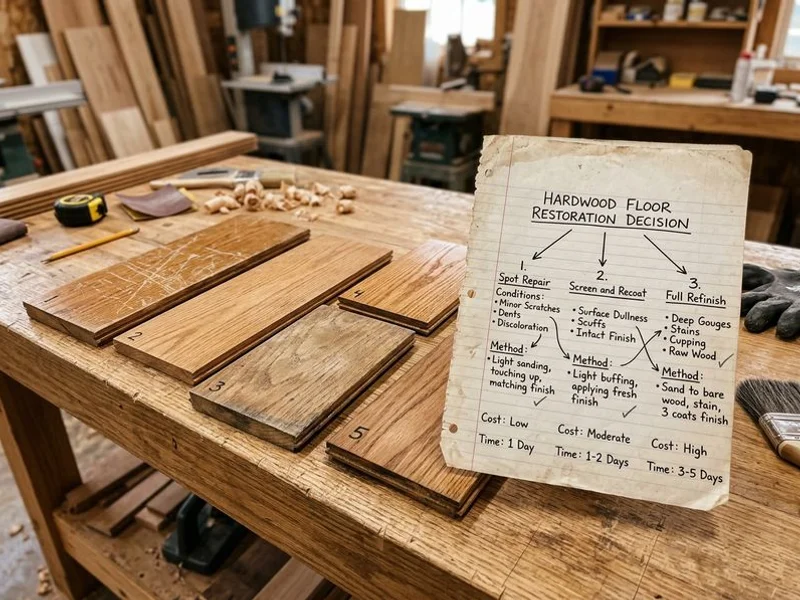 HARDWOOD FLOOR
RESTORATION DECISION
1.
Spot Repair
Conditions:
• Minor Scratches
• Dents
• Discoloration
Method:
• Light sanding,
touching up,
matching finish
Cost: Low
Time: 1 Day
2.
Screen and Recoat
• Surface Dullness
• Scuffs
• Intact Finish
Method:
• Light buffing,
applying fresh
finish
Cost: Moderate
Time: 1-2 Days
3.
Full Refinish
• Deep Gouges
• Stains
• Cupping
• Raw Wood
Method:
• Sand to bare
wood, stain,
3 coats finish
Cost: High
Time: 3-5 Days
1
2
3
4
5